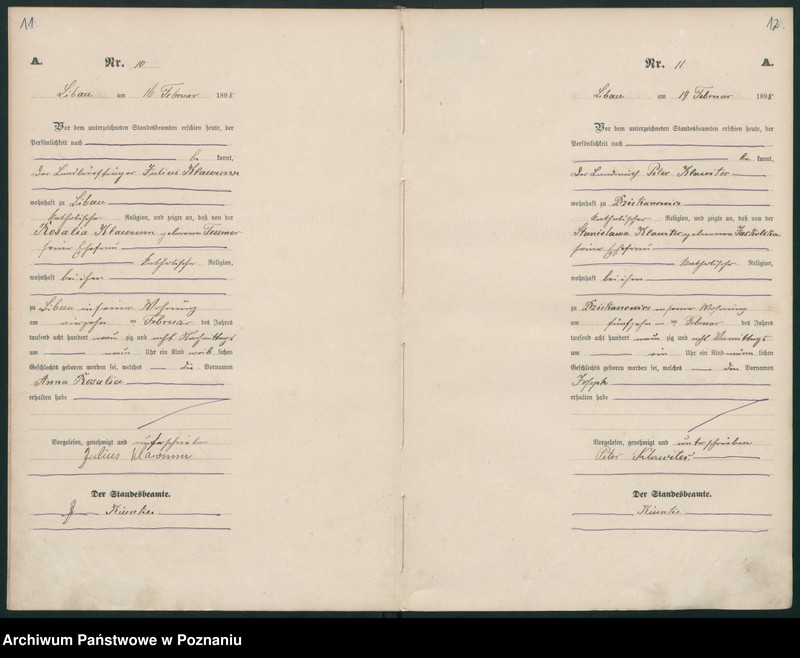 11
A.
Nr. 10
Libau am 16 Februar 1898
Vor dem unterzeichneten Standesbeamten erschien heute, der
Persönlichkeit nach
be kannt,
der Landbriefträger Julius Klawunn
wohnhaft zu Libau
katholischer Religion, und zeigte an, daß von der
Rosalia Klawunn geborenen
seiner Ehefrau
katholischer Religion,
wohnhaft bei ihm
zu Libau in seiner Wohnung
am vierzehn ten Februar des Jahres
tausend acht hundert neun zig und acht Nachmittags
um neun Uhr ein Kind weib lichen
Geschlechts geboren worden sei, welches die Vornamen
Anna Rosalia
erhalten habe
Vorgelesen, genehmigt und unterschrieben
Julius Klawunn
Der Standesbeamte.
12
Nr. 11
A.
Libau am 19 Februar 1898
Vor dem unterzeichneten Standesbeamten erschien heute, der
Persönlichkeit nach
be kannt,
der Landwirth Peter Klawiter
wohnhaft zu Dziekanowice
katholischer Religion, und zeigte an, daß von der
Stanislawa Klawiter geborenen
seiner Ehefrau
katholischer Religion,
wohnhaft bei ihm
zu Dziekanowice in seiner Wohnung
am fünfzehn ten Februar des Jahres
tausend acht hundert neun zig und acht Vormittags
um ein Uhr ein Kind männ lichen
Geschlechts geboren worden sei, welches den Vornamen
Joseph
erhalten habe
Vorgelesen, genehmigt und unterschrieben
Peter Klawiter
Der Standesbeamte.
Archiwum Państwowe w Poznaniu